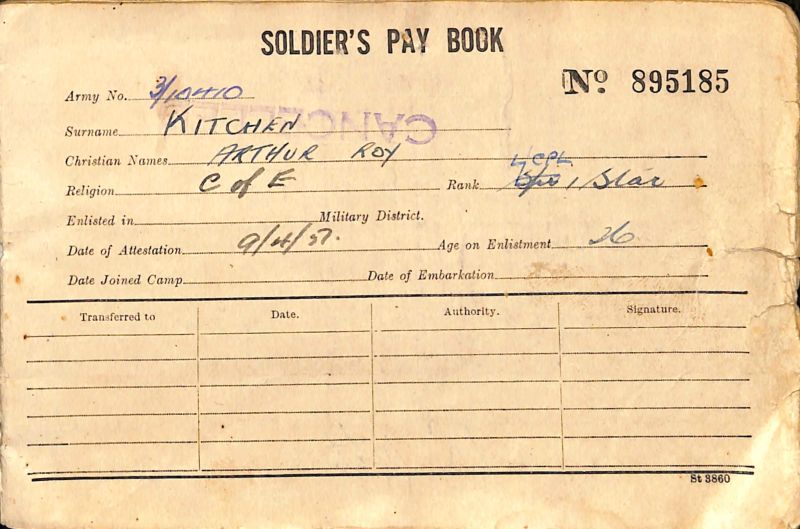 SOLDIER'S PAY BOOK
Nº 895185
Army No. 3/10410
CANCELLED
Surname KITCHEN
Christian Names ARTHUR ROY
L/CPL
Religion C of E Rank 1 Star
Enlisted in Military District.
Date of Attestation 9/4/57. Age on Enlistment 26
Date Joined Camp Date of Embarkation
Transferred to Date. Authority. Signature.
St 3860